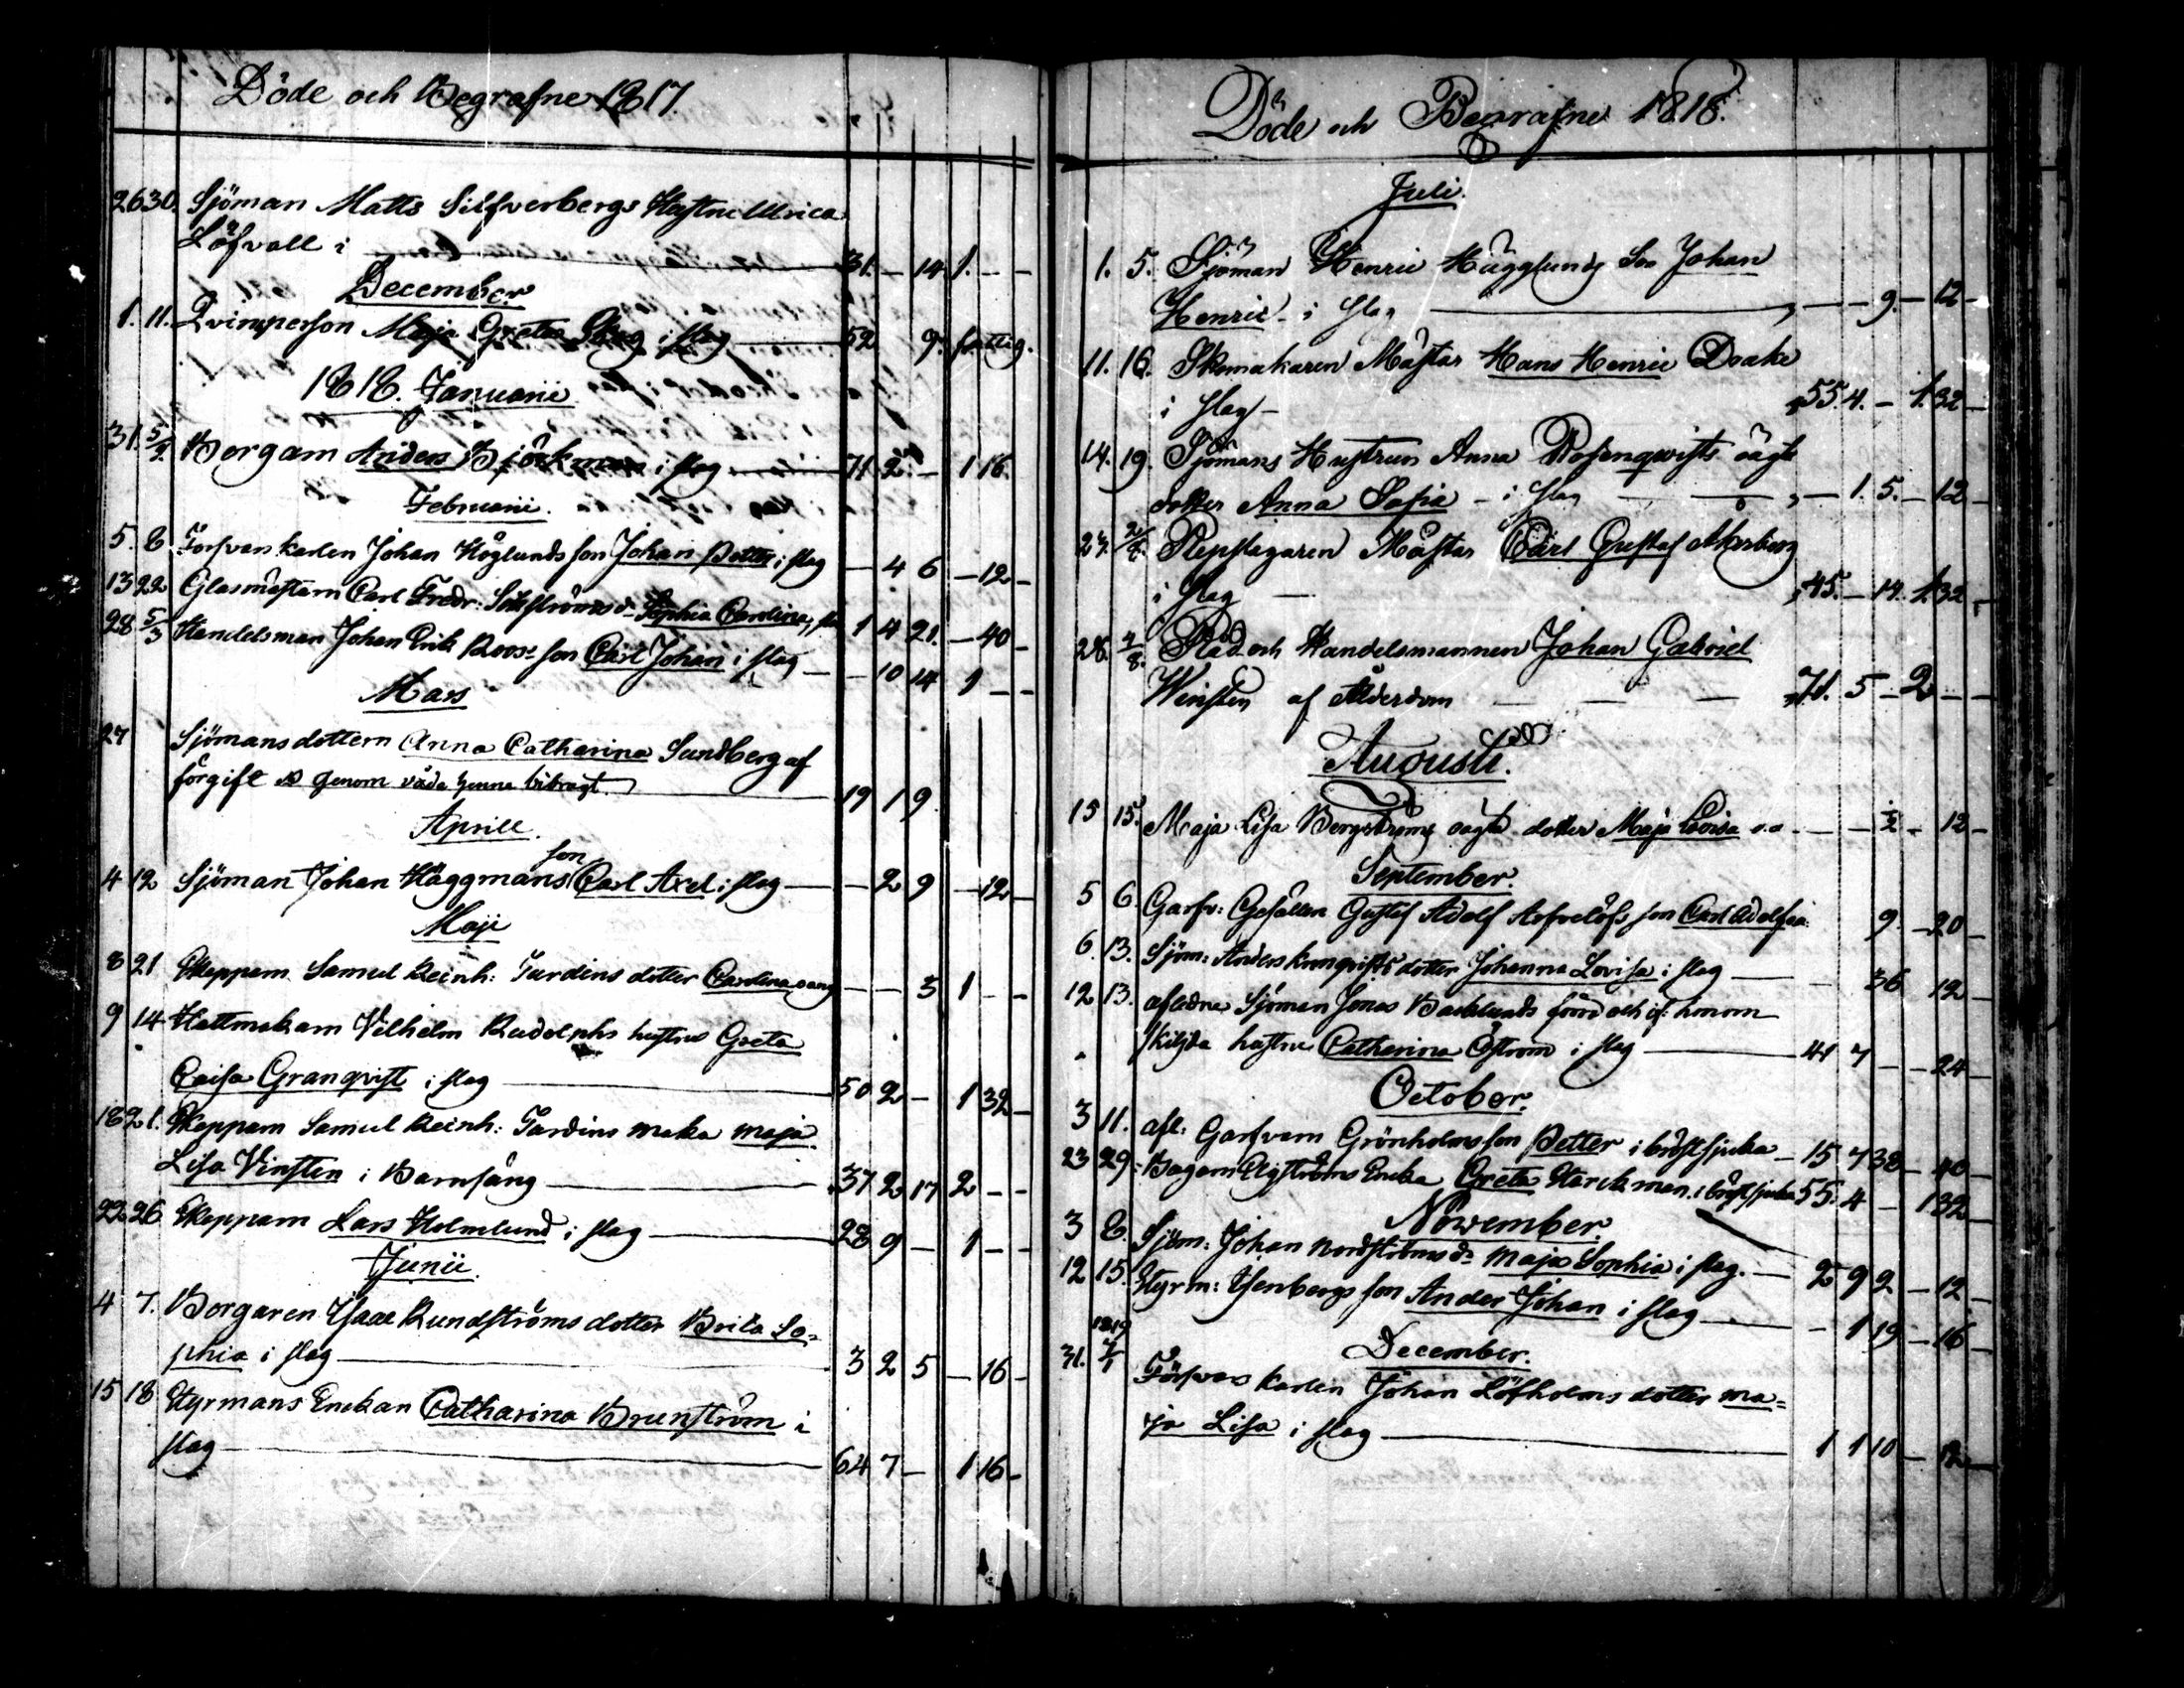 Döde och Begrafne 1817.
26 30. Sjöman Matts Silfverbergs Hustru Ulrica
Löfvall i 31. — 14 1. — —
December.
1. 11. Qvinsperson Maja Greta Skog i slag 52 9. fattig.
1818. Januarii
31. 5/2. Borgarn Anders Björkman i slag 71 2 — 1 16.
Februarii.
5. 8. Försvarskarlen Johan Höglunds son Johan Petter i slag — 4 6 — 12 —
13 22 Glasmästarn Carl Fredr: d:r Sophia Carolina i slag 1 4 21. — 40 —
28 5/3 Handelsman Johan Erik Roos' son Carl Johan i slag — — 10 14 1 — —
Mars
27 Sjömansdottern Anna Catharina Sundberg af
förgift genom våda henne bibragt. 19 1 9.
Aprill.
4 12 Sjöman Johan Häggmans son Carl Axel i slag — — 2 9 — 12 —
Maji
8 21 Skepparn Samuel Reinh: Tardins dotter Carolina oang — — 3 1 — —
9 14 Hattmakarn Vilhelm Rudolphs hustru Greta
Caisa Granqvist i slag 50 2 — 1 32 —
18 21. Skepparn Samuel Reinh: Tardins maka Maja
Lisa Vinsten i Barnsäng 37 2 17 2 — —
22 26 Skepparn Lars Holmlund i slag 28 9 — 1 — —
Junii.
4 7. Borgaren Isaac Rundströms dotter Brita So=
phia i slag 3 2 5 — 16 —
15 18 Styrmans Enckan Catharina Brunström i
slag 64 7 — 1 16 —
Döde och Begrafne 1818.
Juli.
1. 5. Sjöman Henric Hägglunds Son Johan
Henric — i slag — — 9. — 12 —
11. 16. Skomakaren Mästar Hans Henric Doake
i slag — 55. 4. — 1. 32 —
14. 19. Sjömans Hustrun Anna Rosenqwists oägta
dotter Anna Sofia — i slag — 1. 5. — 12 —
27. 2/8. Repslagaren Mästar Carl Gustaf Akerberg
i slag — 45. — 14. 1. 32
28. 4/8. Råd och Handelsmannen Johan Gabriel
Winsten af Ålderdom — — — 71. 5 — 2 — —
Augusti.
13 15. Maja Lisa Bergströms oägta dotter Maja Lovisa — — 1/2 — 12 —
September.
5 6. Garfv: Gesällen Gustaf Adolf Arfvelöfs son Carl Adolf 9. — 20 —
6. 13. Sjöm: Anders dotter Johanna Lovisa i slag — — 36 12 —
12 13. aflidne Sjöman Jonas Backlunds förra och if: honom
skiljda hustru Catharina Öström i slag 41 7 — — 24 —
October.
3 11. afl: Garfvarn Grönholms son Petter i bröstsjuka — 15 7 38 — 40 —
23 29. Bagarn Enka Greta Harckman i bröstsjuka 55. 4 — 1 32 —
November.
3 8. Sjöm: Johan Nordströms d:r Maja Sophia i slag. — 2 9 2 — 12 —
12 15. Styrm: Isenbergs son Anders Johan i slag — 1 19 — 16 —
December.
1819
31. 7/1 Försvars karlen Johan Löfholms dotter Ma=
ja Lisa i slag 1 1 10 — 12 —